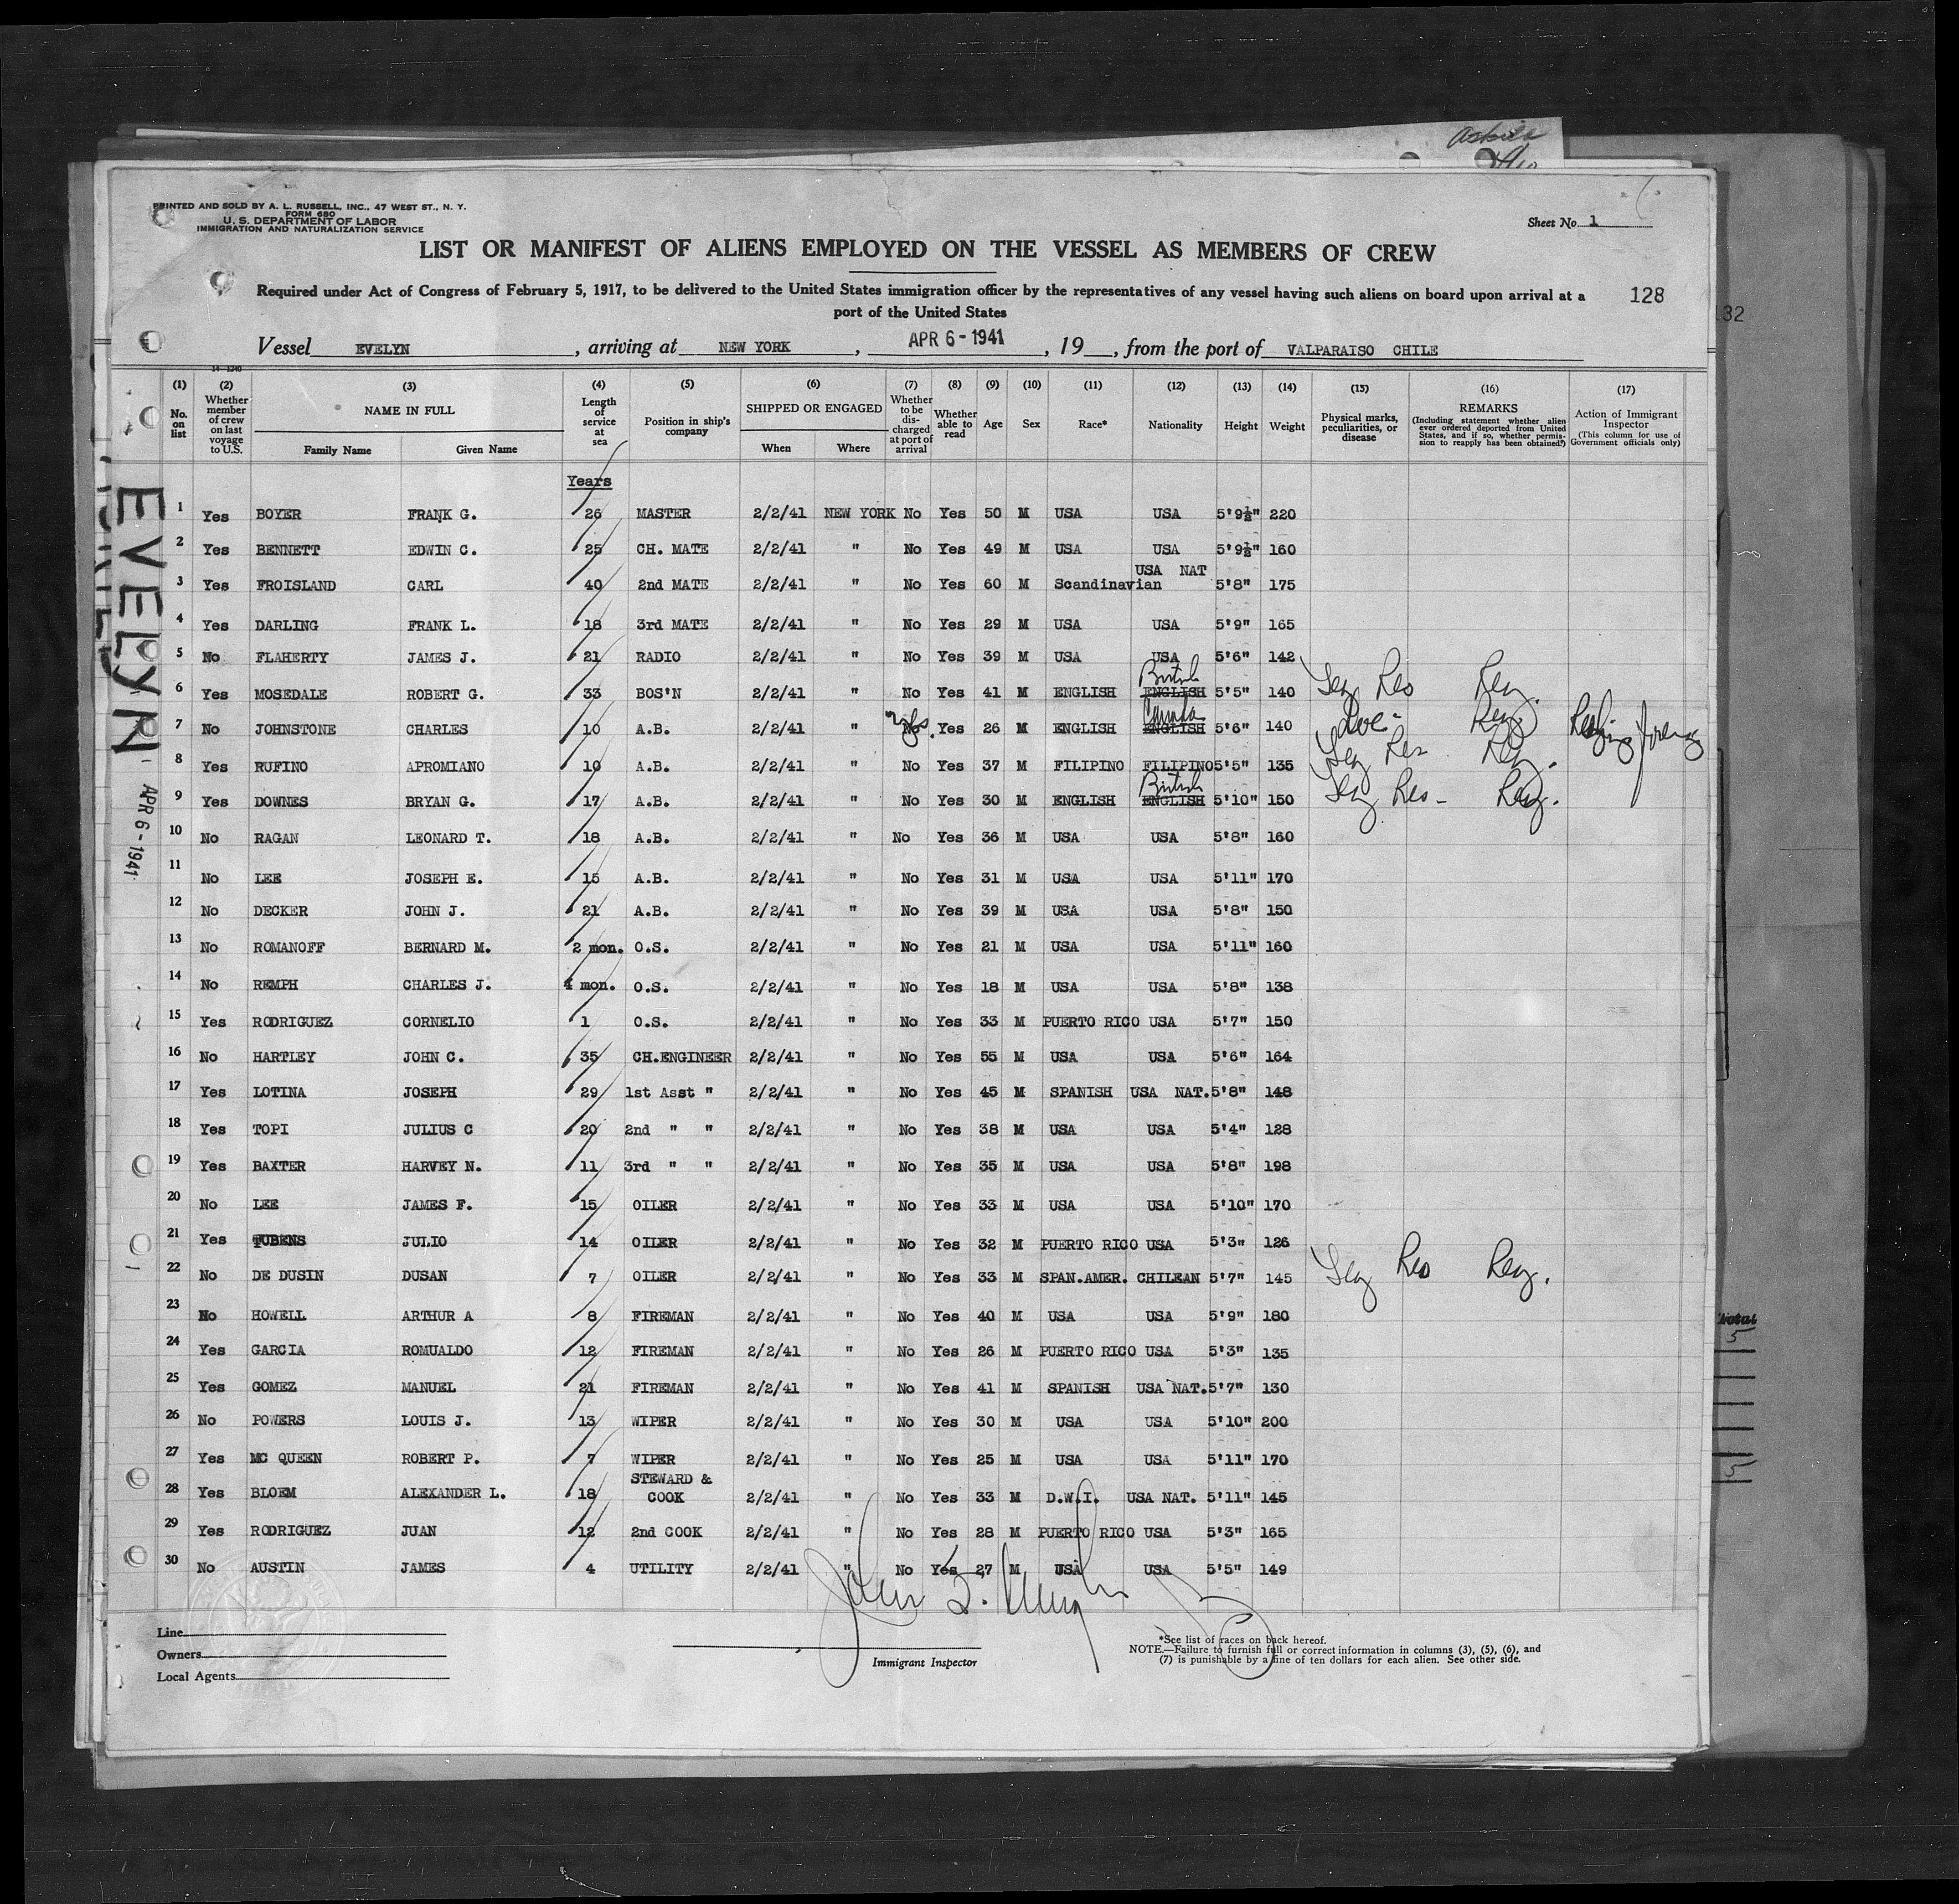 PRINTED AND SOLD BY A. L. RUSSELL, INC., 47 WEST ST., N. Y.
FORM 680
U. S. DEPARTMENT OF LABOR
IMMIGRATION AND NATURALIZATION SERVICE
Sheet No. 1
LIST OR MANIFEST OF ALIENS EMPLOYED ON THE VESSEL AS MEMBERS OF CREW
Required under Act of Congress of February 5, 1917, to be delivered to the United States immigration officer by the representatives of any vessel having such aliens on board upon arrival at a
port of the United States
128
132
Vessel EVELYN, arriving at NEW YORK, APR 6 - 1941, 19 , from the port of VALPARAISO CHILE
(1) No. on list
(2) Whether member of crew on last voyage to U.S.
(3) NAME IN FULL Family Name Given Name
(4) Length of service at sea
(5) Position in ship's company
(6) SHIPPED OR ENGAGED When Where
(7) Whether to be discharged at port of arrival
(8) Whether able to read
(9) Age
(10) Sex
(11) Race*
(12) Nationality
(13) Height
(14) Weight
(15) Physical marks, peculiarities, or disease
(16) REMARKS (Including statement whether alien ever ordered deported from United States, and if so, whether permission to reapply has been obtained?)
(17) Action of Immigrant Inspector (This column for use of Government officials only)
Years
1 Yes BOYER FRANK G. 26 MASTER 2/2/41 NEW YORK No Yes 50 M USA USA 5'9½" 220
2 Yes BENNETT EDWIN C. 25 CH. MATE 2/2/41 " No Yes 49 M USA USA 5'9½" 160
3 Yes FROISLAND CARL 40 2nd MATE 2/2/41 " No Yes 60 M Scandinavian USA NAT 5'8" 175
4 Yes DARLING FRANK L. 18 3rd MATE 2/2/41 " No Yes 29 M USA USA 5'9" 165
5 No FLAHERTY JAMES J. 21 RADIO 2/2/41 " No Yes 39 M USA USA 5'6" 142
6 Yes MOSEDALE ROBERT G. 33 BOS'N 2/2/41 " No Yes 41 M ENGLISH ENGLISH British 5'5" 140
7 No JOHNSTONE CHARLES 10 A.B. 2/2/41 " No yes Yes 26 M ENGLISH ENGLISH Canada 5'6" 140
8 Yes RUFINO APROMIANO 10 A.B. 2/2/41 " No Yes 37 M FILIPINO FILIPINO 5'5" 135
9 Yes DOWNES BRYAN G. 17 A.B. 2/2/41 " No Yes 30 M ENGLISH ENGLISH British 5'10" 150
10 No RAGAN LEONARD T. 18 A.B. 2/2/41 " No Yes 36 M USA USA 5'8" 160
11 No LEE JOSEPH E. 15 A.B. 2/2/41 " No Yes 31 M USA USA 5'11" 170
12 No DECKER JOHN J. 21 A.B. 2/2/41 " No Yes 39 M USA USA 5'8" 150
13 No ROMANOFF BERNARD M. 2 mon. O.S. 2/2/41 " No Yes 21 M USA USA 5'11" 160
14 No REMPH CHARLES J. 4 mon. O.S. 2/2/41 " No Yes 18 M USA USA 5'8" 138
15 Yes RODRIGUEZ CORNELIO 1 O.S. 2/2/41 " No Yes 33 M PUERTO RICO USA 5'7" 150
16 No HARTLEY JOHN C. 35 CH.ENGINEER 2/2/41 " No Yes 55 M USA USA 5'6" 164
17 Yes LOTINA JOSEPH 29 1st Asst " 2/2/41 " No Yes 45 M SPANISH USA NAT. 5'8" 148
18 Yes TOPI JULIUS C 20 2nd " " 2/2/41 " No Yes 38 M USA USA 5'4" 128
19 Yes BAXTER HARVEY N. 11 3rd " " 2/2/41 " No Yes 35 M USA USA 5'8" 198
20 No LEE JAMES F. 15 OILER 2/2/41 " No Yes 33 M USA USA 5'10" 170
21 Yes TUBENS JULIO 14 OILER 2/2/41 " No Yes 32 M PUERTO RICO USA 5'3" 126
22 No DE DUSIN DUSAN 7 OILER 2/2/41 " No Yes 33 M SPAN.AMER. CHILEAN 5'7" 145
23 No HOWELL ARTHUR A 8 FIREMAN 2/2/41 " No Yes 40 M USA USA 5'9" 180
24 Yes GARCIA ROMUALDO 12 FIREMAN 2/2/41 " No Yes 26 M PUERTO RICO USA 5'3" 135
25 Yes GOMEZ MANUEL 21 FIREMAN 2/2/41 " No Yes 41 M SPANISH USA NAT. 5'7" 130
26 No POWERS LOUIS J. 13 WIPER 2/2/41 " No Yes 30 M USA USA 5'10" 200
27 Yes MC QUEEN ROBERT P. 7 WIPER 2/2/41 " No Yes 25 M USA USA 5'11" 170
28 Yes BLOEM ALEXANDER L. 18 STEWARD & COOK 2/2/41 " No Yes 33 M D.W.I. USA NAT. 5'11" 145
29 Yes RODRIGUEZ JUAN 12 2nd COOK 2/2/41 " No Yes 28 M PUERTO RICO USA 5'3" 165
30 No AUSTIN JAMES 4 UTILITY 2/2/41 " No Yes 27 M USA USA 5'5" 149
EVELYN
APR 6 - 1941
Line
Owners
Local Agents
Immigrant Inspector
*See list of races on back hereof.
NOTE.—Failure to furnish full or correct information in columns (3), (5), (6), and
(7) is punishable by a fine of ten dollars for each alien. See other side.